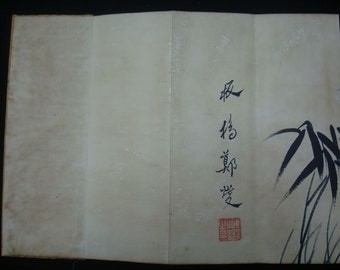 板橋鄭燮